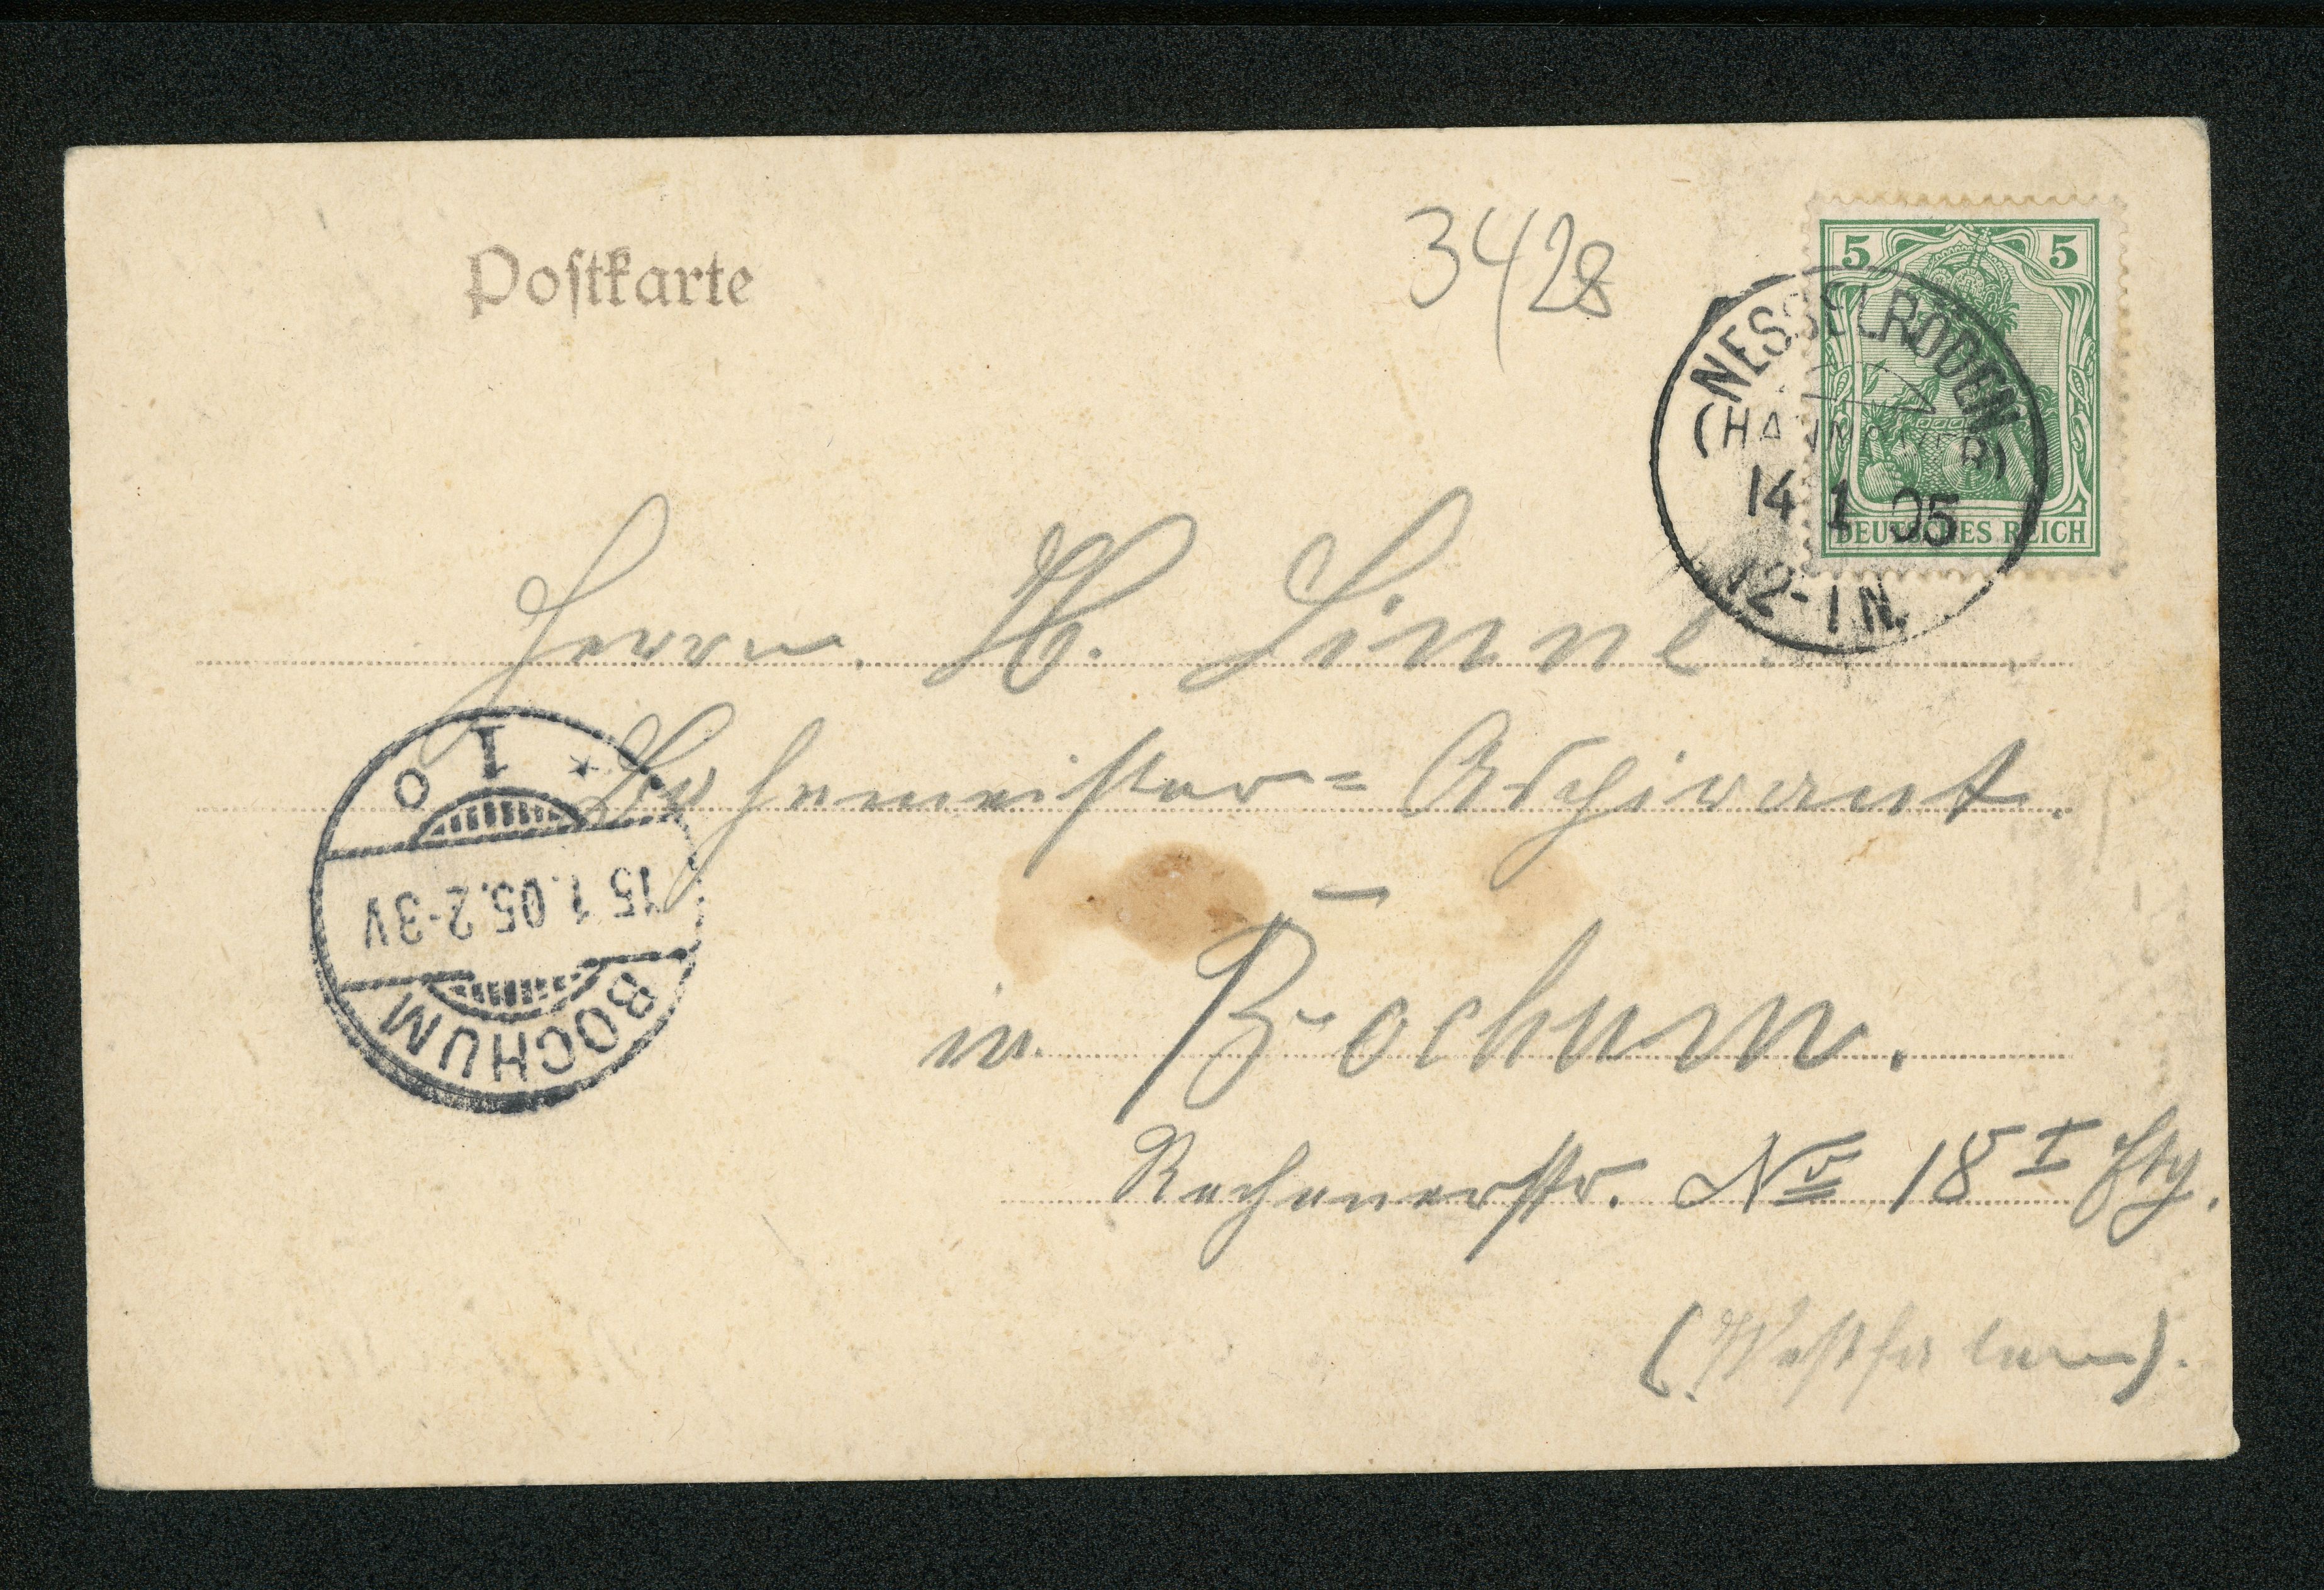 Postkarte
3428
5 5
DEUTSCHES REICH
NESSELRÖDEN
(HANNOVER)
14 1 05
12-1N.
Herrn H. Linne.
Aspirant.
in Bochum.
Rechenerstr. No 18 I Etg.
(Westfalen).
BOCHUM
15.1.05.2-3V
* 1 o